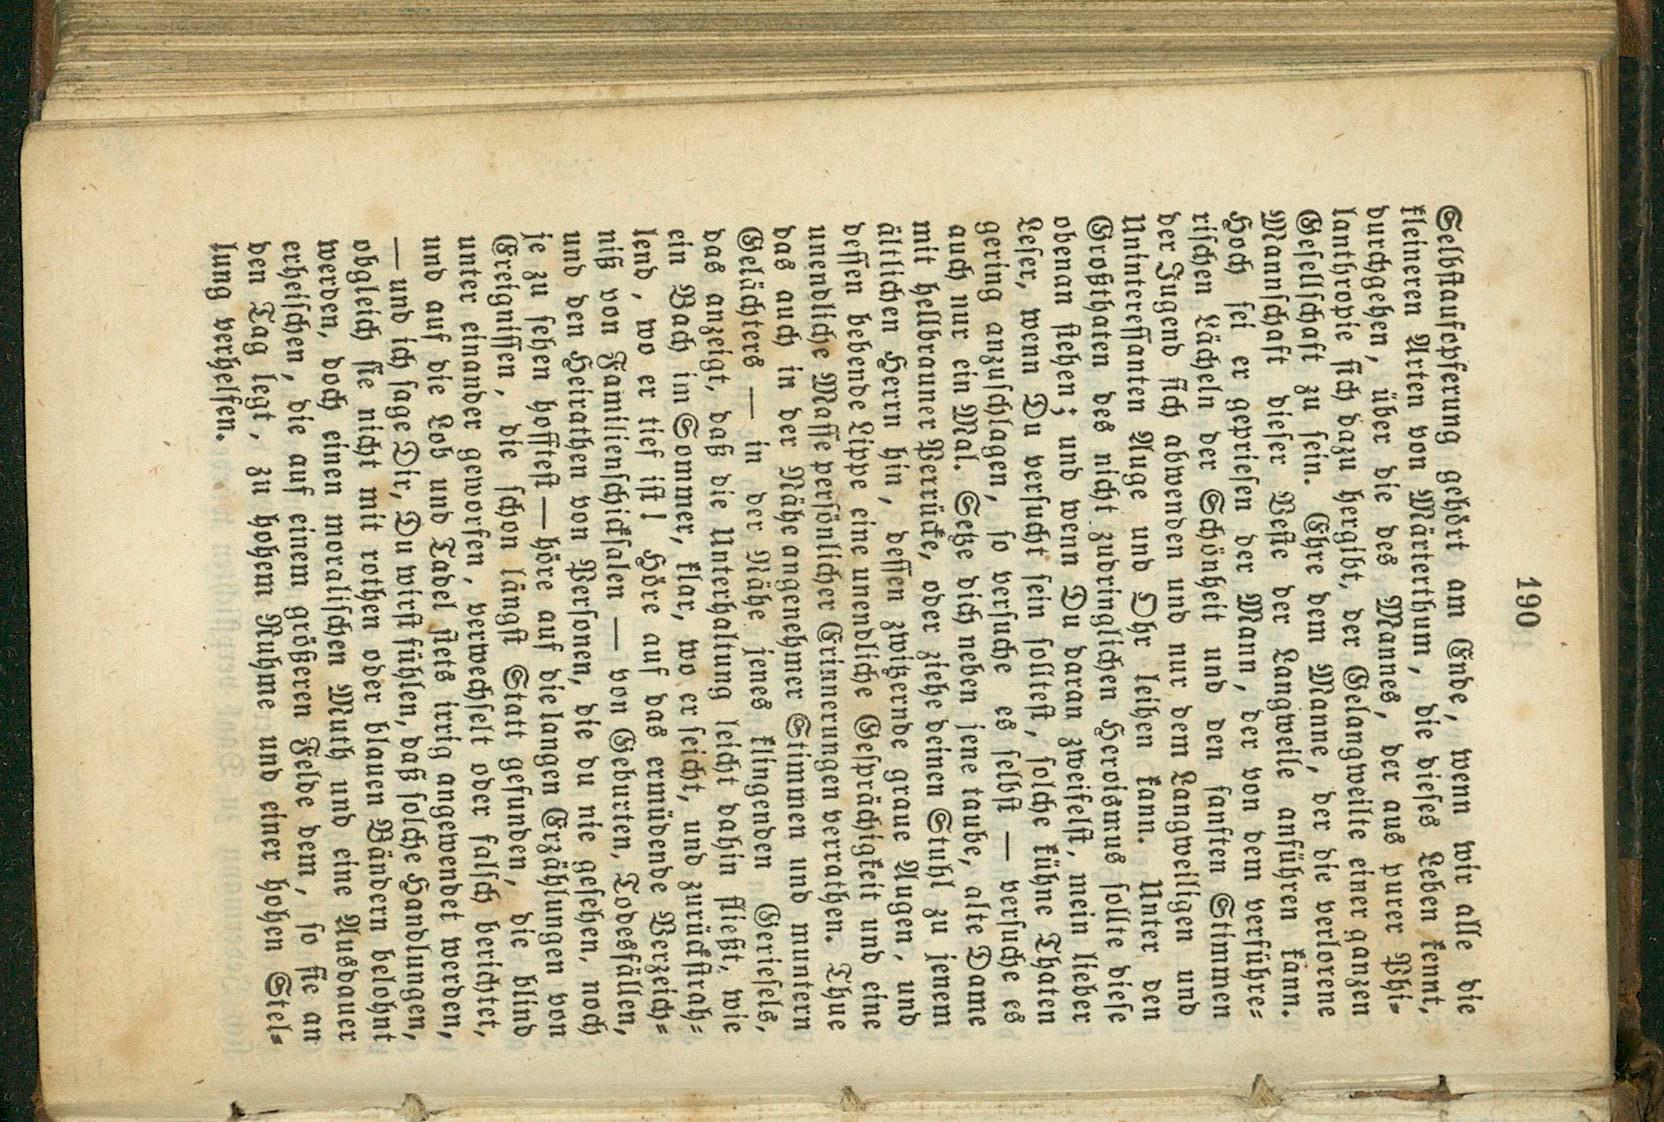 190
Selbstaufopferung gehört am Ende, wenn wir alle die
kleineren Arten von Märterthum, die dieses Leben kennt,
durchgehen, über die des Mannes, der aus purer Phi-
lanthropie sich dazu hergibt, der Gelangweilte einer ganzen
Gesellschaft zu sein. Ehre dem Manne, der die verlorene
Mannschaft dieser Veste der Langweile anführen kann.
Hoch sei er gepriesen der Mann, der von dem verführe-
rischen Lächeln der Schönheit und den sanften Stimmen
der Jugend sich abwenden und nur dem Langweiligen und
Uninteressanten Auge und Ohr leihen kann. Unter den
Großthaten des nicht zudringlichen Heroismus sollte diese
obenan stehen; und wenn Du daran zweifelst, mein lieber
Leser, wenn Du versucht sein solltest, solche kühne Thaten
gering anzuschlagen, so versuche es selbst — versuche es
auch nur ein Mal. Setze dich neben jene taube, alte Dame
mit hellbrauner Perrücke, oder ziehe deinen Stuhl zu jenem
ältlichen Herrn hin, dessen zwitzernde graue Augen, und
dessen bebende Lippe eine unendliche Gesprächigkeit und eine
unendliche Masse persönlicher Erinnerungen verrathen. Thue
das auch in der Nähe angenehmer Stimmen und muntern
Gelächters — in der Nähe jenes klingenden Geriesels,
das anzeigt, daß die Unterhaltung leicht dahin fließt, wie
ein Bach in Sommer, klar, wo er seicht, und zurückstrah-
lend, wo er tief ist! Höre auf das ermüdende Verzeich-
niß von Familienschicksalen — von Geburten, Todesfällen,
und den Heirathen von Personen, die du nie gesehen, noch
je zu sehen hofftest — höre auf die langen Erzählungen von
Ereignissen, die schon längst Statt gefunden, die blind
unter einander geworfen, verwechselt oder falsch berichtet,
und auf die Lob und Tadel stets irrig angewendet werden,
— und ich sage Dir, Du wirst fühlen, daß solche Handlungen,
obgleich sie nicht mit rothen oder blauen Bändern belohnt
werden, doch einen moralischen Muth und eine Ausdauer
erheischen, die auf einem größeren Felde dem, so sie an
den Tag legt, zu hohem Ruhme und einer hohen Stel-
lung verhelfen.